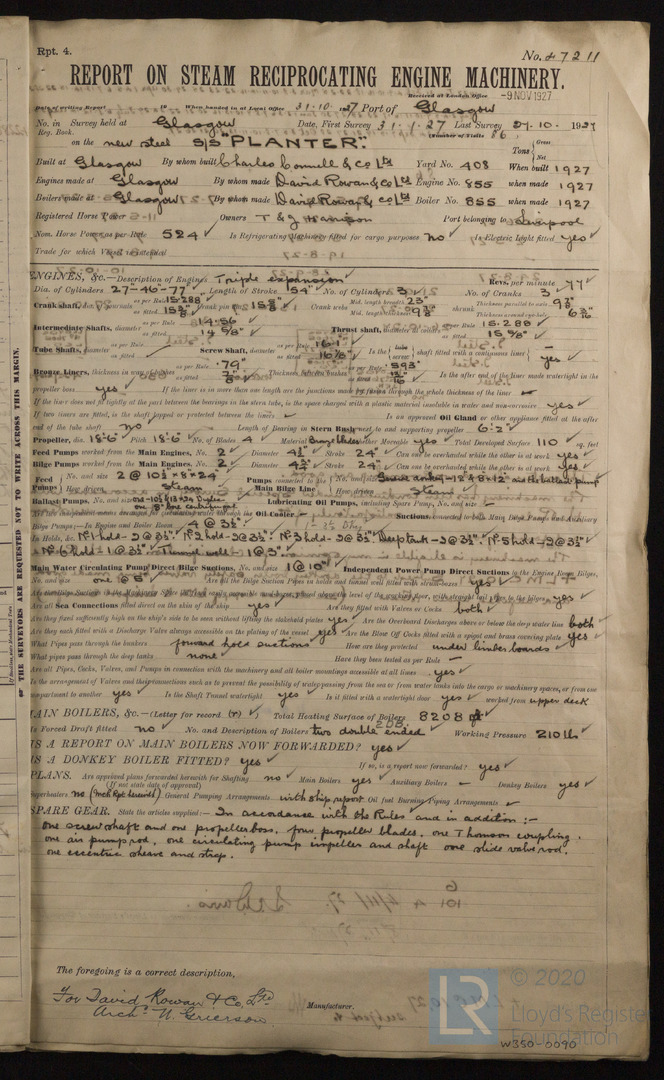 Rpt. 4.
No. 47211
REPORT ON STEAM RECIPROCATING ENGINE MACHINERY.
Received at London Office -9 NOV 1927
Date of writing Report 19 When handed in at Local Office 31.10.1927 Port of Glasgow
No. in Survey held at Glasgow Date, First Survey 31.1.27 Last Survey 27.10.1927
Reg. Book. (Number of Visits 86)
on the new steel S/S "PLANTER". Tons Gross Net
Built at Glasgow By whom built Charles Connell & Co Ltd Yard No. 408 When built 1927
Engines made at Glasgow By whom made David Rowan & Co Ltd Engine No. 855 when made 1927
Boilers made at Glasgow By whom made David Rowan & Co Ltd Boiler No. 855 when made 1927
Registered Horse Power Owners T & J Harrison Port belonging to Liverpool
Nom. Horse Power as per Rule 524 Is Refrigerating Machinery fitted for cargo purposes no Is Electric Light fitted yes
Trade for which Vessel is intended
ENGINES, &c.—Description of Engines Triple expansion Revs. per minute 77
Dia. of Cylinders 27-46-77 Length of Stroke 54" No. of Cylinders 3 No. of Cranks 3
Crank shaft, dia. of journals as per Rule 15.288 as fitted Crank pin dia. Crank webs Mid. length breadth 23" Thickness parallel to axis
Mid. length thickness 9⅜" Thickness around eye-hole
Intermediate Shafts, diameter as per Rule 14.56 as fitted 14⅝" Thrust shaft, diameter at collars as per Rule 15.288 as fitted 15⅝"
Tube Shafts, diameter as per Rule as fitted Screw Shaft, diameter as per Rule 16.1 as fitted 16⅞" Is the tube screw shaft fitted with a continuous liner yes
Bronze Liners, thickness in way of bushes as per Rule .79" as fitted ⅞" Thickness between bushes as per Rule .593" as fitted Is the after end of the liner made watertight in the
propeller boss yes If the liner is in more than one length are the junctions made by fusion through the whole thickness of the liner —
If the liner does not fit tightly at the part between the bearings in the stern tube, is the space charged with a plastic material insoluble in water and non-corrosive yes
If two liners are fitted, is the shaft lapped or protected between the liners — Is an approved Oil Gland or other appliance fitted at the after
end of the tube shaft no Length of Bearing in Stern Bush next to and supporting propeller 6'-2"
Propeller, dia. 18'-6" Pitch 18'-6" No. of Blades 4 Material Bronze blades whether Moveable yes Total Developed Surface 110 sq. feet
Feed Pumps worked from the Main Engines, No. 2 Diameter 4½" Stroke 24" Can one be overhauled while the other is at work yes
Bilge Pumps worked from the Main Engines, No. 2 Diameter Stroke 24" Can one be overhauled while the other is at work yes
Feed Pumps No. and size 2 @ 10½ × 8 × 24 How driven Steam Pumps connected to the Main Bilge Line No. and size How driven Steam
Ballast Pumps, No. and size Lubricating Oil Pumps, including Spare Pump, No. and size —
Are two independent means arranged for circulating water through the Oil Cooler — Suctions, connected to both Main Bilge Pumps and Auxiliary
Bilge Pumps:—In Engine and Boiler Room 4 @ 3½"
In Holds, &c. No 1 hold - 2 @ 3½" No 2 hold - 2 @ 3½" No 3 hold - 2 @ 3½" Deep tank - 2 @ 3½" No 5 hold - 2 @ 3½"
No 6 hold - 1 @ 3½" Tunnel well - 1 @ 3"
Main Water Circulating Pump Direct Bilge Suctions, No. and size 1 @ 10" Independent Power Pump Direct Suctions to the Engine Room Bilges,
No. and size one @ 5" Are all the Bilge Suction Pipes in holds and tunnel well fitted with strum-boxes yes
Are the Bilge Suctions in the Machinery Space led from easily accessible mud boxes, placed above the level of the working floor, with straight tail pipes to the bilges yes
Are all Sea Connections fitted direct on the skin of the ship yes Are they fitted with Valves or Cocks both
Are they fixed sufficiently high on the ship's side to be seen without lifting the stokehold plates yes Are the Overboard Discharges above or below the deep water line both
Are they each fitted with a Discharge Valve always accessible on the plating of the vessel yes Are the Blow Off Cocks fitted with a spigot and brass covering plate yes
What Pipes pass through the bunkers forward hold suctions How are they protected under limber boards
What pipes pass through the deep tanks none Have they been tested as per Rule —
Are all Pipes, Cocks, Valves, and Pumps in connection with the machinery and all boiler mountings accessible at all times yes
Is the arrangement of Valves and their connections such as to prevent the possibility of water passing from the sea or from water tanks into the cargo or machinery spaces, or from one
compartment to another yes Is the Shaft Tunnel watertight yes Is it fitted with a watertight door yes worked from upper deck
MAIN BOILERS, &c.—(Letter for record (r)) Total Heating Surface of Boilers 8208
Is Forced Draft fitted no No. and Description of Boilers two double ended 2DB. Working Pressure 210 lb
IS A REPORT ON MAIN BOILERS NOW FORWARDED? yes
IS A DONKEY BOILER FITTED? yes If so, is a report now forwarded? yes
PLANS. Are approved plans forwarded herewith for Shafting no Main Boilers yes Auxiliary Boilers — Donkey Boilers yes
(If not state date of approval)
Superheaters no General Pumping Arrangements with ship report Oil fuel Burning Piping Arrangements —
SPARE GEAR. State the articles supplied:— In accordance with the Rules and in addition :-
One screw shaft and one propeller boss, four propeller blades, one Thomson coupling,
one air pump rod, one circulating pump impeller and shaft one slide valve rod,
one eccentric sheave and strap.
The foregoing is a correct description,
For David Rowan & Co. Ltd
Archd. N. Grierson
Manufacturer.
© 2020
LR
Lloyd's Register
Foundation
W350-0090
OR THE SURVEYORS ARE REQUESTED NOT TO WRITE ACROSS THIS MARGIN.